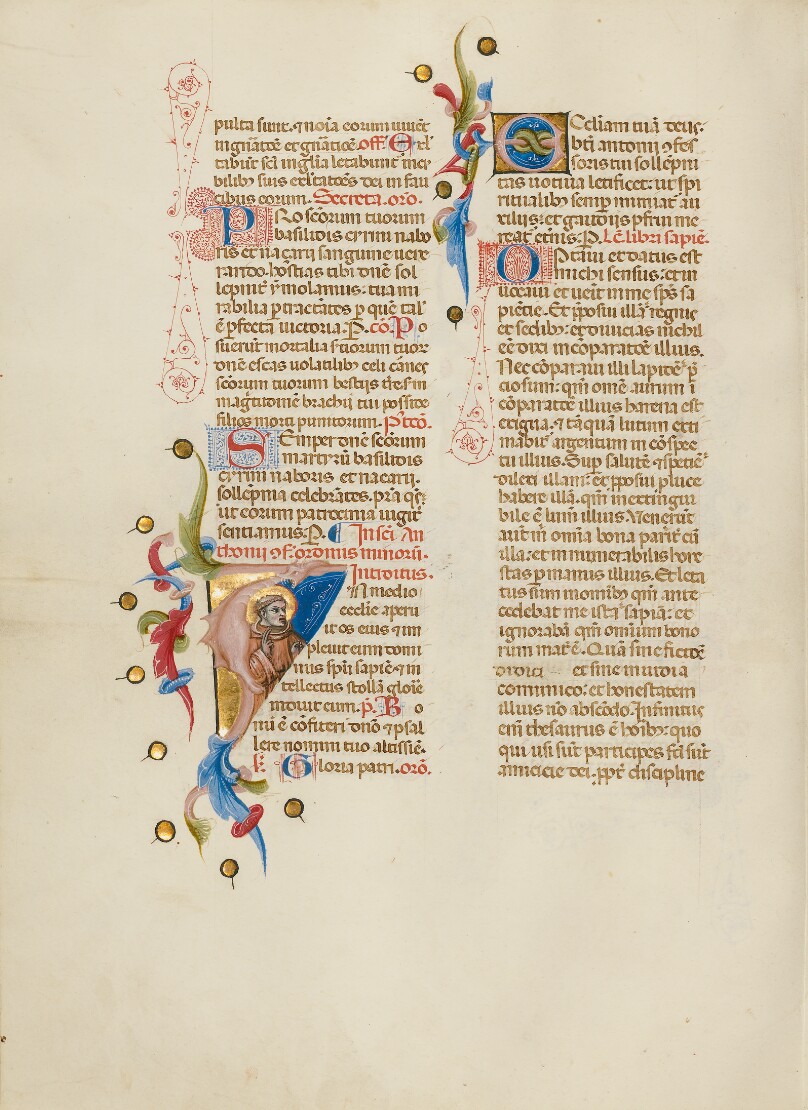 pulta sunt. ⁊ noı̄a eorum uiuēt
in gnatōe et gnatiōe. off. Exl
tabūt sci in glīa letabunt̄ in cu
bilib⁹ suis exl̄tatōes dei in fau
cibus eorum. Secreta. oro.
PRo scōrum tuorum
basilidis cyrini nabo
ris et naçarii sanguine uene
rando. hostias tibi dn̄e sol
lepnit̄ ymolamus: tua mi
rabilia ꝑtractātes ꝑ quē tal̄
ē ꝑfecta uictoria. P. cō. Po
suerūt mortalia s̄uorum tuor̄
dn̄e escas uolatilib⁹ celi carnes
scōrum tuorum bestiis tre sm̄
magtudinē brachii tui posside
filios morti punitorum. P̄tcō.
SEmper dn̄e scōrum
martyrū basilidis
cyrini naboris et naçarii.
sollēpnia celebrātes. pr̄a qs̄
ut eorum patrocinia iugit̄
sentiamus. P. In sc̄i An
thonii ꝯf. ordinis minorū.
Introitus.
IN medio
ecclīe aperu
it os eius ⁊ im
pleuit eum domi
nus spū sapiē ⁊ in
tellectus stollā glorīe
induit eum. p̄. Bo
nū ē cōfiteri dn̄o ⁊ psal
lere nomini tuo altissīē.
℣. Gloria patri. orō.
ECcliam tuā deus.
bt̄i antonii ꝯfes
soris tui sollēpni
tas uotiua letificet: ut spi
ritualib⁹ semꝑ muniat̄ au
xiliis: et gaudiis ꝑfrui me
reat̄ etnis. P. Lc̄ libri sapiē.
OPtaui et datus est
michi sensus: et in
uocaui et uēit in me sp̄s sa
piētie. Et p̄posui illā regnis
et sedib⁹: et diuicias nichil
eē dixi in cōparatōe illius.
Nec cōparaui illi lapidē p̄
ciosum: qm̄ omē aurum ī
cōparatōe illius harena est
exigua. ⁊ tāquā lutum exti
mabit̄ argentum in cōspec
tu illius. Suꝑ salutē ⁊ speciē
dilexi illam: et p̄posui p̄ luce
habere illā. qm̄ inextingui
bile ē lumē illius. Venerūt
aut̄ m̄ omīa bona parit̄ cū
illa: et innumerabilis hone
stas ꝑ manus illius. Et leta
tus sum in omib⁹ qm̄ ante
cedebat me ista sapīa: et
ignorabā qm̄ omnium bono
rum mat̄ ē. Quā sine fictōe
didici et sine inuidia
communico: et honestatem
illius nō abscōdo. Infinitus
eni thesaurus ē hoib⁹: quo
qui usi sūt participes fc̄i sūt
amicicie dei. ꝓpt̄ discipline